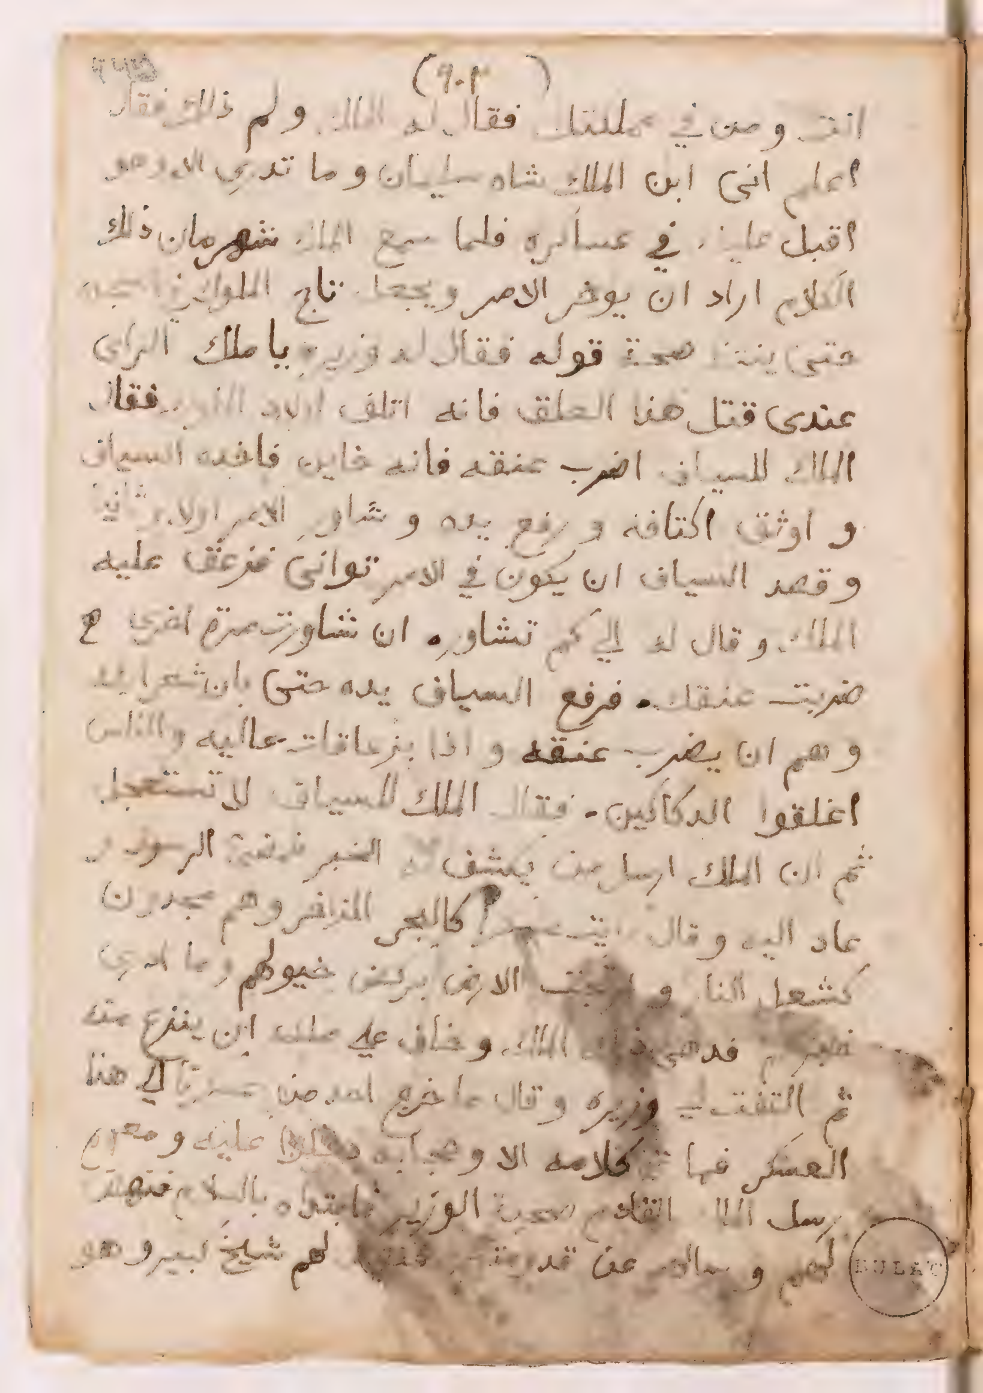 (٩٠٣)
انت ومن في مملكتك فقال له الملك ولم ذلك فقال
اعلم انى ابن الملك شاه سليمان وما تدري الا وهو
اقبل عليك في عساكره فلما سمع الملك شهرمان ذلك
الكلام اراد ان يوخر الامر ويجعل تاج الملوك في السجن
حتى ينظر صحة قوله فقال له وزيره يا ملك الراى
عندى قتل هذا العلق فانه اتلف اولاد الملوك فقال
الملك للسياف اضرب عنقه فانه خاين فاخذه السياف
و اوثق اكتافه و رفع يده و شاور الامر اولا وثانيا
وقصد السياف ان يكون في الامر توانى فزعق عليه
الملك وقال له الي كم تشاور. ان شاورت مرة اخرى
ضربت عنقك. فرفع السياف يده حتى بان شعر ابطه
وهم ان يضرب عنقه و اذا بزعاقات عاليه والناس
اغلقوا الدكاكين. فقال الملك للسياف لا تستعجل
ثم ان الملك ارسل من يكشف له الخبر فمضى الرسول و
عاد اليه وقال رايت كالبحر الزاخر وهم مجدون
كشعل النار و ارتجت الارض بركض خيولهم وما ادري
خبرهم فدهش الملك وخاف على ملكه ان ينزع منه
ثم التفت لـ وزيره وقال ما خرج احد من عسكرنا الي هذا
العسكر فما تم كلامه الا وحجابه دخلوا عليه و معهم
رسل الملك القادم صحبة الوزير فابتداه بالسلام فنهض
لهم و سالهم عن قدومهم لهم شيخ كبير وهو
BULAC